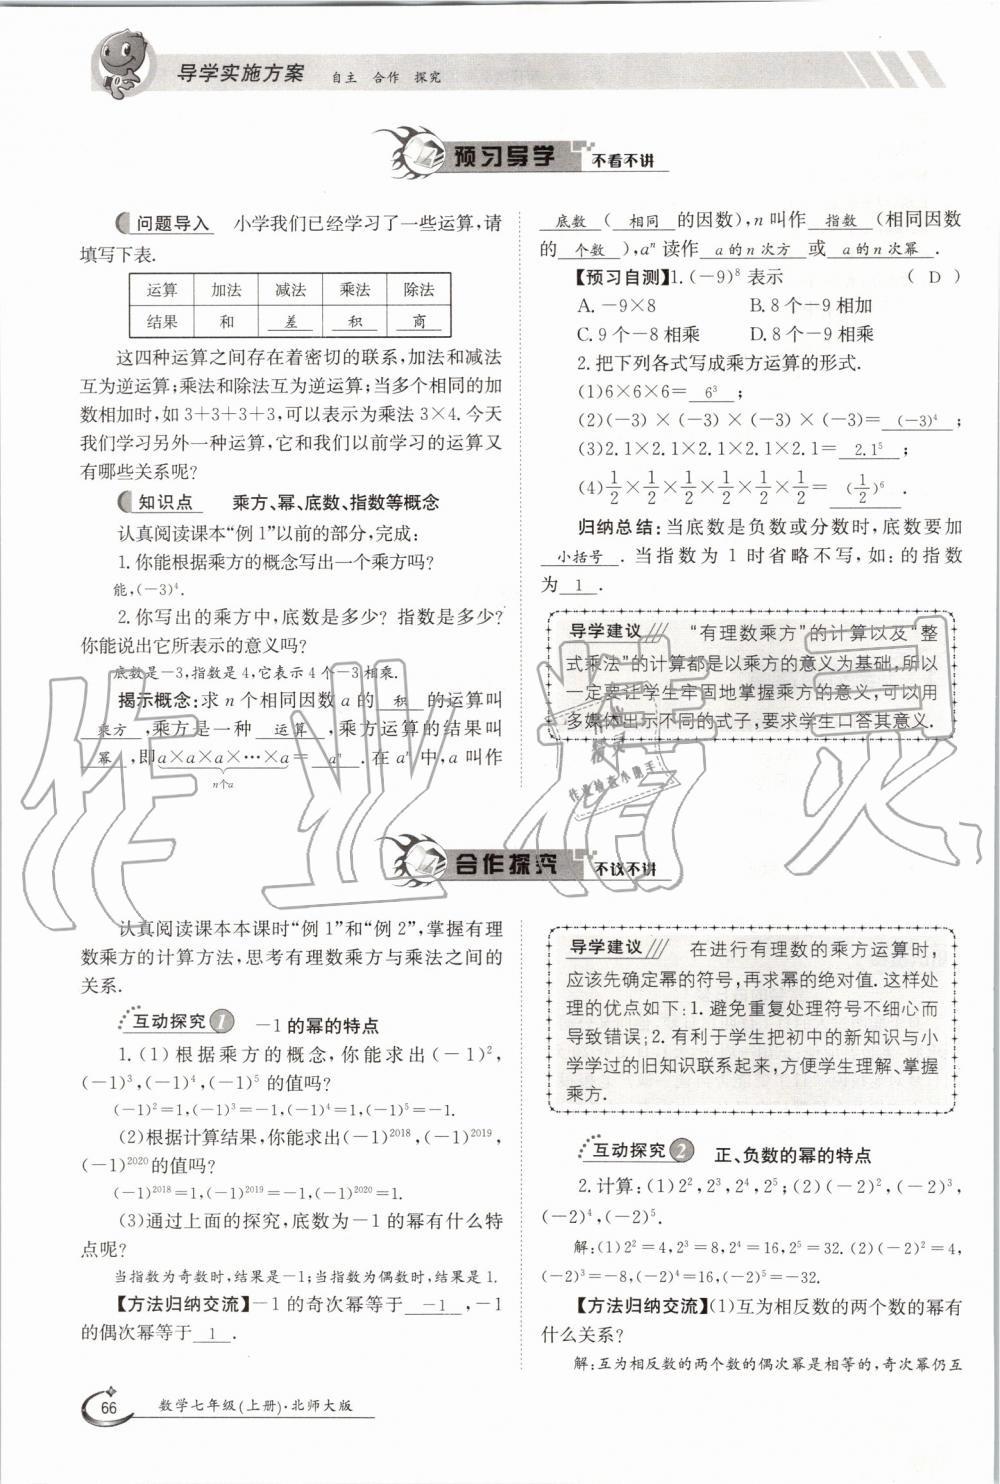 导学实施方案 自主 合作 探究
预习导学 不看不讲
问题导入 小学我们已经学习了一些运算,请
填写下表.
运算 加法 减法 乘法 除法
结果 和 差 积 商
这四种运算之间存在着密切的联系,加法和减法
互为逆运算;乘法和除法互为逆运算;当多个相同的加
数相加时,如 3+3+3+3,可以表示为乘法 3×4. 今天
我们学习另外一种运算,它和我们以前学习的运算又
有哪些关系呢?
知识点 乘方、幂、底数、指数等概念
认真阅读课本“例 1”以前的部分,完成:
1. 你能根据乘方的概念写出一个乘方吗?
能,(-3)⁴.
2. 你写出的乘方中,底数是多少? 指数是多少?
你能说出它所表示的意义吗?
底数是-3,指数是 4,它表示 4 个-3 相乘.
揭示概念:求 n 个相同因数 a 的 积 的运算叫
乘方 ,乘方是一种 运算 ,乘方运算的结果叫
幂 ,即a×a×a×…×a= aⁿ .在 aⁿ 中,a 叫作
n个a
底数 ( 相同 的因数),n 叫作 指数 (相同因数
的 个数 ),aⁿ 读作 a 的 n 次方 或 a 的 n 次幂 .
【预习自测】1. (-9)⁸ 表示 ( D )
A. -9×8 B. 8 个-9 相加
C. 9 个-8 相乘 D. 8 个-9 相乘
2. 把下列各式写成乘方运算的形式.
(1)6×6×6= 6³ ;
(2)(-3)×(-3)×(-3)×(-3)= (-3)⁴ ;
(3)2.1×2.1×2.1×2.1×2.1= 2.1⁵ ;
(4)1/2×1/2×1/2×1/2×1/2×1/2= (1/2)⁶ .
归纳总结:当底数是负数或分数时,底数要加
小括号 . 当指数为 1 时省略不写,如:的指数
为 1 .
导学建议 “有理数乘方”的计算以及“整
式乘法”的计算都是以乘方的意义为基础,所以
一定要让学生牢固地掌握乘方的意义,可以用
多媒体出示不同的式子,要求学生口答其意义.
合作探究 不议不讲
认真阅读课本本课时“例 1”和“例 2”,掌握有理
数乘方的计算方法,思考有理数乘方与乘法之间的
关系.
互动探究 1 -1 的幂的特点
1. (1)根据乘方的概念,你能求出(-1)²,
(-1)³,(-1)⁴,(-1)⁵ 的值吗?
(-1)²=1,(-1)³=-1,(-1)⁴=1,(-1)⁵=-1.
(2)根据计算结果,你能求出(-1)²⁰¹⁸,(-1)²⁰¹⁹,
(-1)²⁰²⁰的值吗?
(-1)²⁰¹⁸=1,(-1)²⁰¹⁹=-1,(-1)²⁰²⁰=1.
(3)通过上面的探究,底数为-1 的幂有什么特
点呢?
当指数为奇数时,结果是-1;当指数为偶数时,结果是 1.
【方法归纳交流】-1 的奇次幂等于 -1 ,-1
的偶次幂等于 1 .
导学建议 在进行有理数的乘方运算时,
应该先确定幂的符号,再求幂的绝对值. 这样处
理的优点如下:1. 避免重复处理符号不细心而
导致错误;2. 有利于学生把初中的新知识与小
学学过的旧知识联系起来,方便学生理解、掌握
乘方.
互动探究 2 正、负数的幂的特点
2. 计算:(1)2²,2³,2⁴,2⁵;(2)(-2)²,(-2)³,
(-2)⁴,(-2)⁵.
解:(1)2²=4,2³=8,2⁴=16,2⁵=32. (2)(-2)²=4,
(-2)³=-8,(-2)⁴=16,(-2)⁵=-32.
【方法归纳交流】(1)互为相反数的两个数的幂有
什么关系?
解:互为相反数的两个数的偶次幂是相等的,奇次幂仍互
66 数学七年级(上册)·北师大版
作业精灵
作业检查小助手